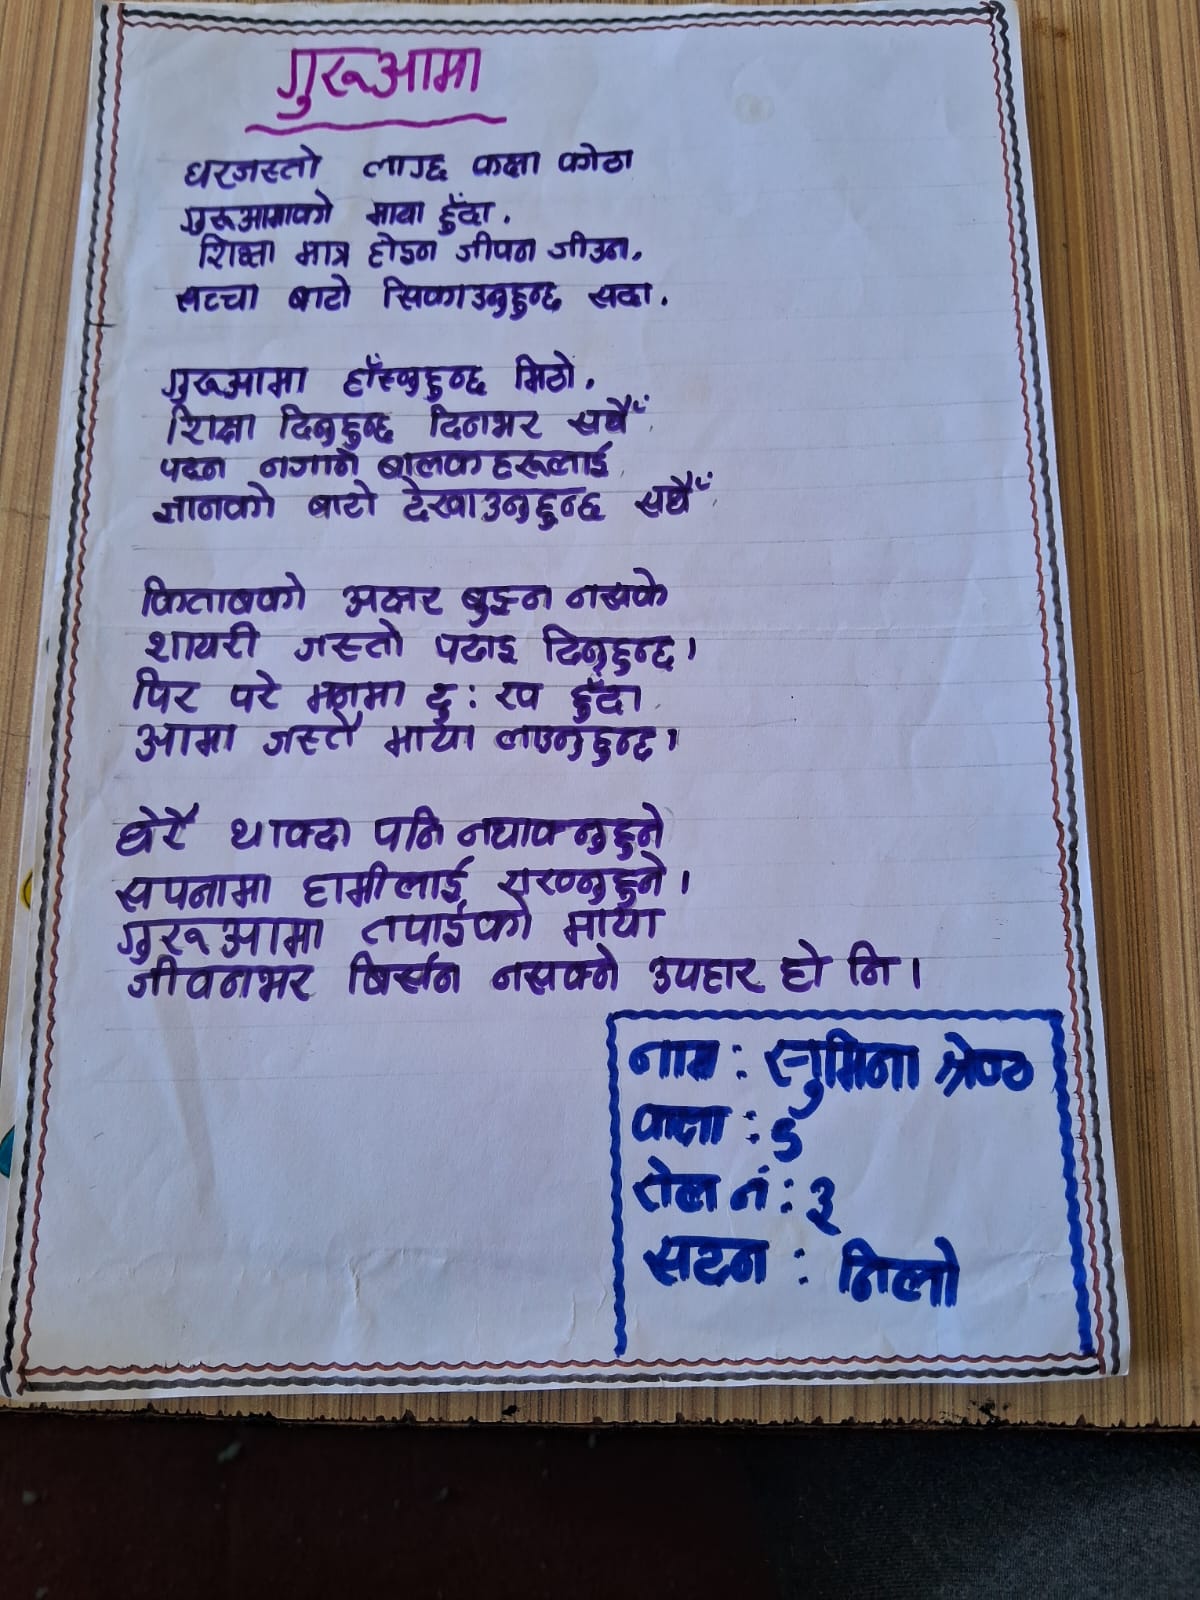 गुरूआमा
घरजस्तो लाग्छ कक्षा कोठा
गुरूआमाको माया हुँदा.
शिक्षा मात्र होइन जीवन जीउन,
सच्चा बाटो सिकाउनुहुन्छ सदा.
गुरूआमा हाँस्नुहुन्छ मिठो,
शिक्षा दिनुहुन्छ दिनभर सधैँ
पढ्न नजाने बालकहरूलाई
ज्ञानको बाटो देखाउनुहुन्छ सधैँ
किताबको अक्षर बुझ्न नसके
शायरी जस्तो पढाइ दिनुहुन्छ।
पिर परे मनमा दु:ख हुँदा
आमा जस्तै माया लाउनुहुन्छ।
धेरै थाक्दा पनि नथाक्नुहुने
सपनामा हामीलाई राख्नुहुने।
गुरूआमा तपाईको माया
जीवनभर बिर्सन नसक्ने उपहार हो नि।
नाम : सुमिना श्रेष्ठ
कक्षा : ६
रोल नं : ३
सदन : निलो